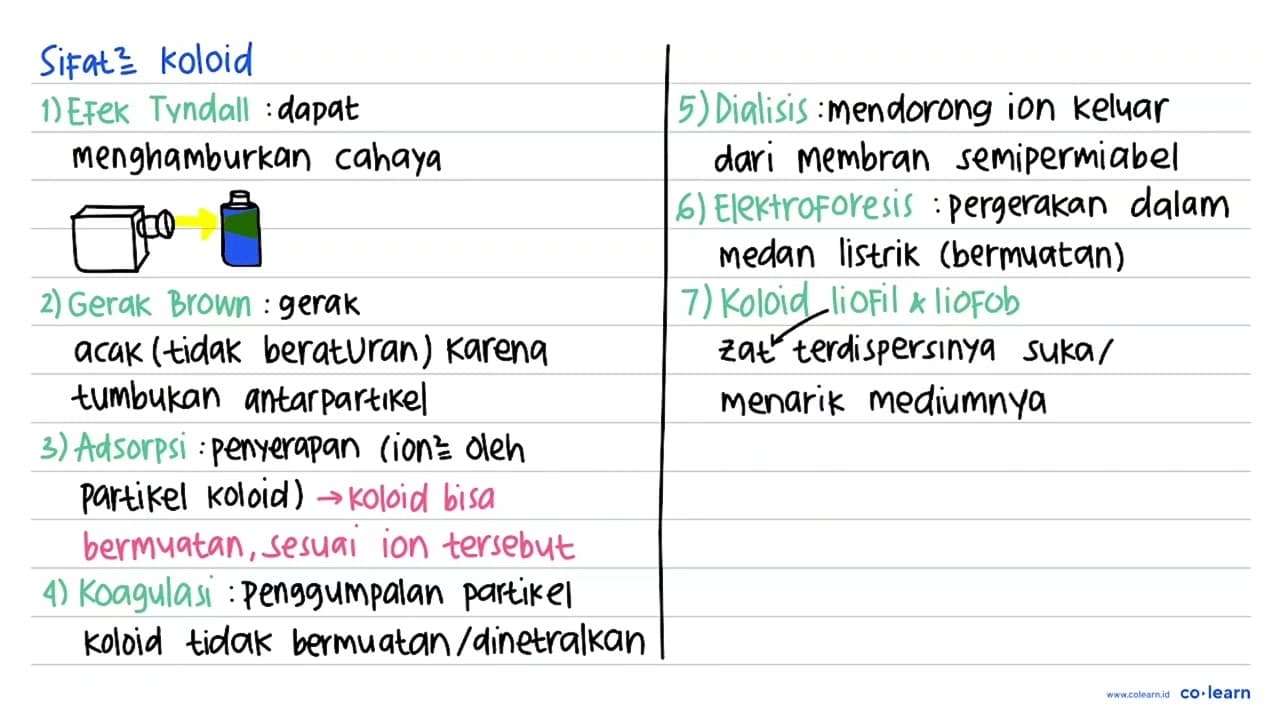 Sifat² koloid
1) Efek Tyndall : dapat
menghamburkan cahaya
2) Gerak Brown : gerak
acak (tidak beraturan) karena
tumbukan antarpartikel
3) Adsorpsi : penyerapan (ion² oleh
partikel koloid) → koloid bisa
bermuatan, sesuai ion tersebut
4) Koagulasi : penggumpalan partikel
koloid tidak bermuatan/dinetralkan
5) Dialisis : mendorong ion keluar
dari membran semipermiabel
6) Elektroforesis : pergerakan dalam
medan listrik (bermuatan)
7) Koloid liofil & liofob
zat terdispersinya suka/
menarik mediumnya
www.colearn.id co·learn